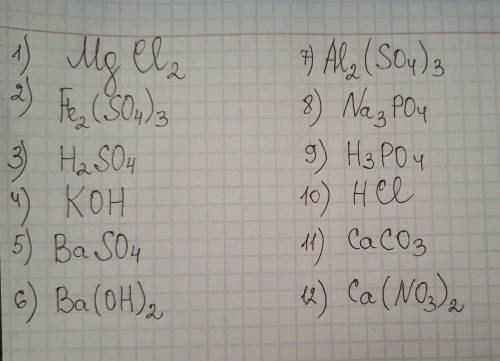 1) MgCl₂
2) Fe₂(SO₄)₃
3) H₂SO₄
4) KOH
5) BaSO₄
6) Ba(OH)₂
7) Al₂(SO₄)₃
8) Na₃PO₄
9) H₃PO₄
10) HCl
11) CaCO₃
12) Ca(NO₃)₂